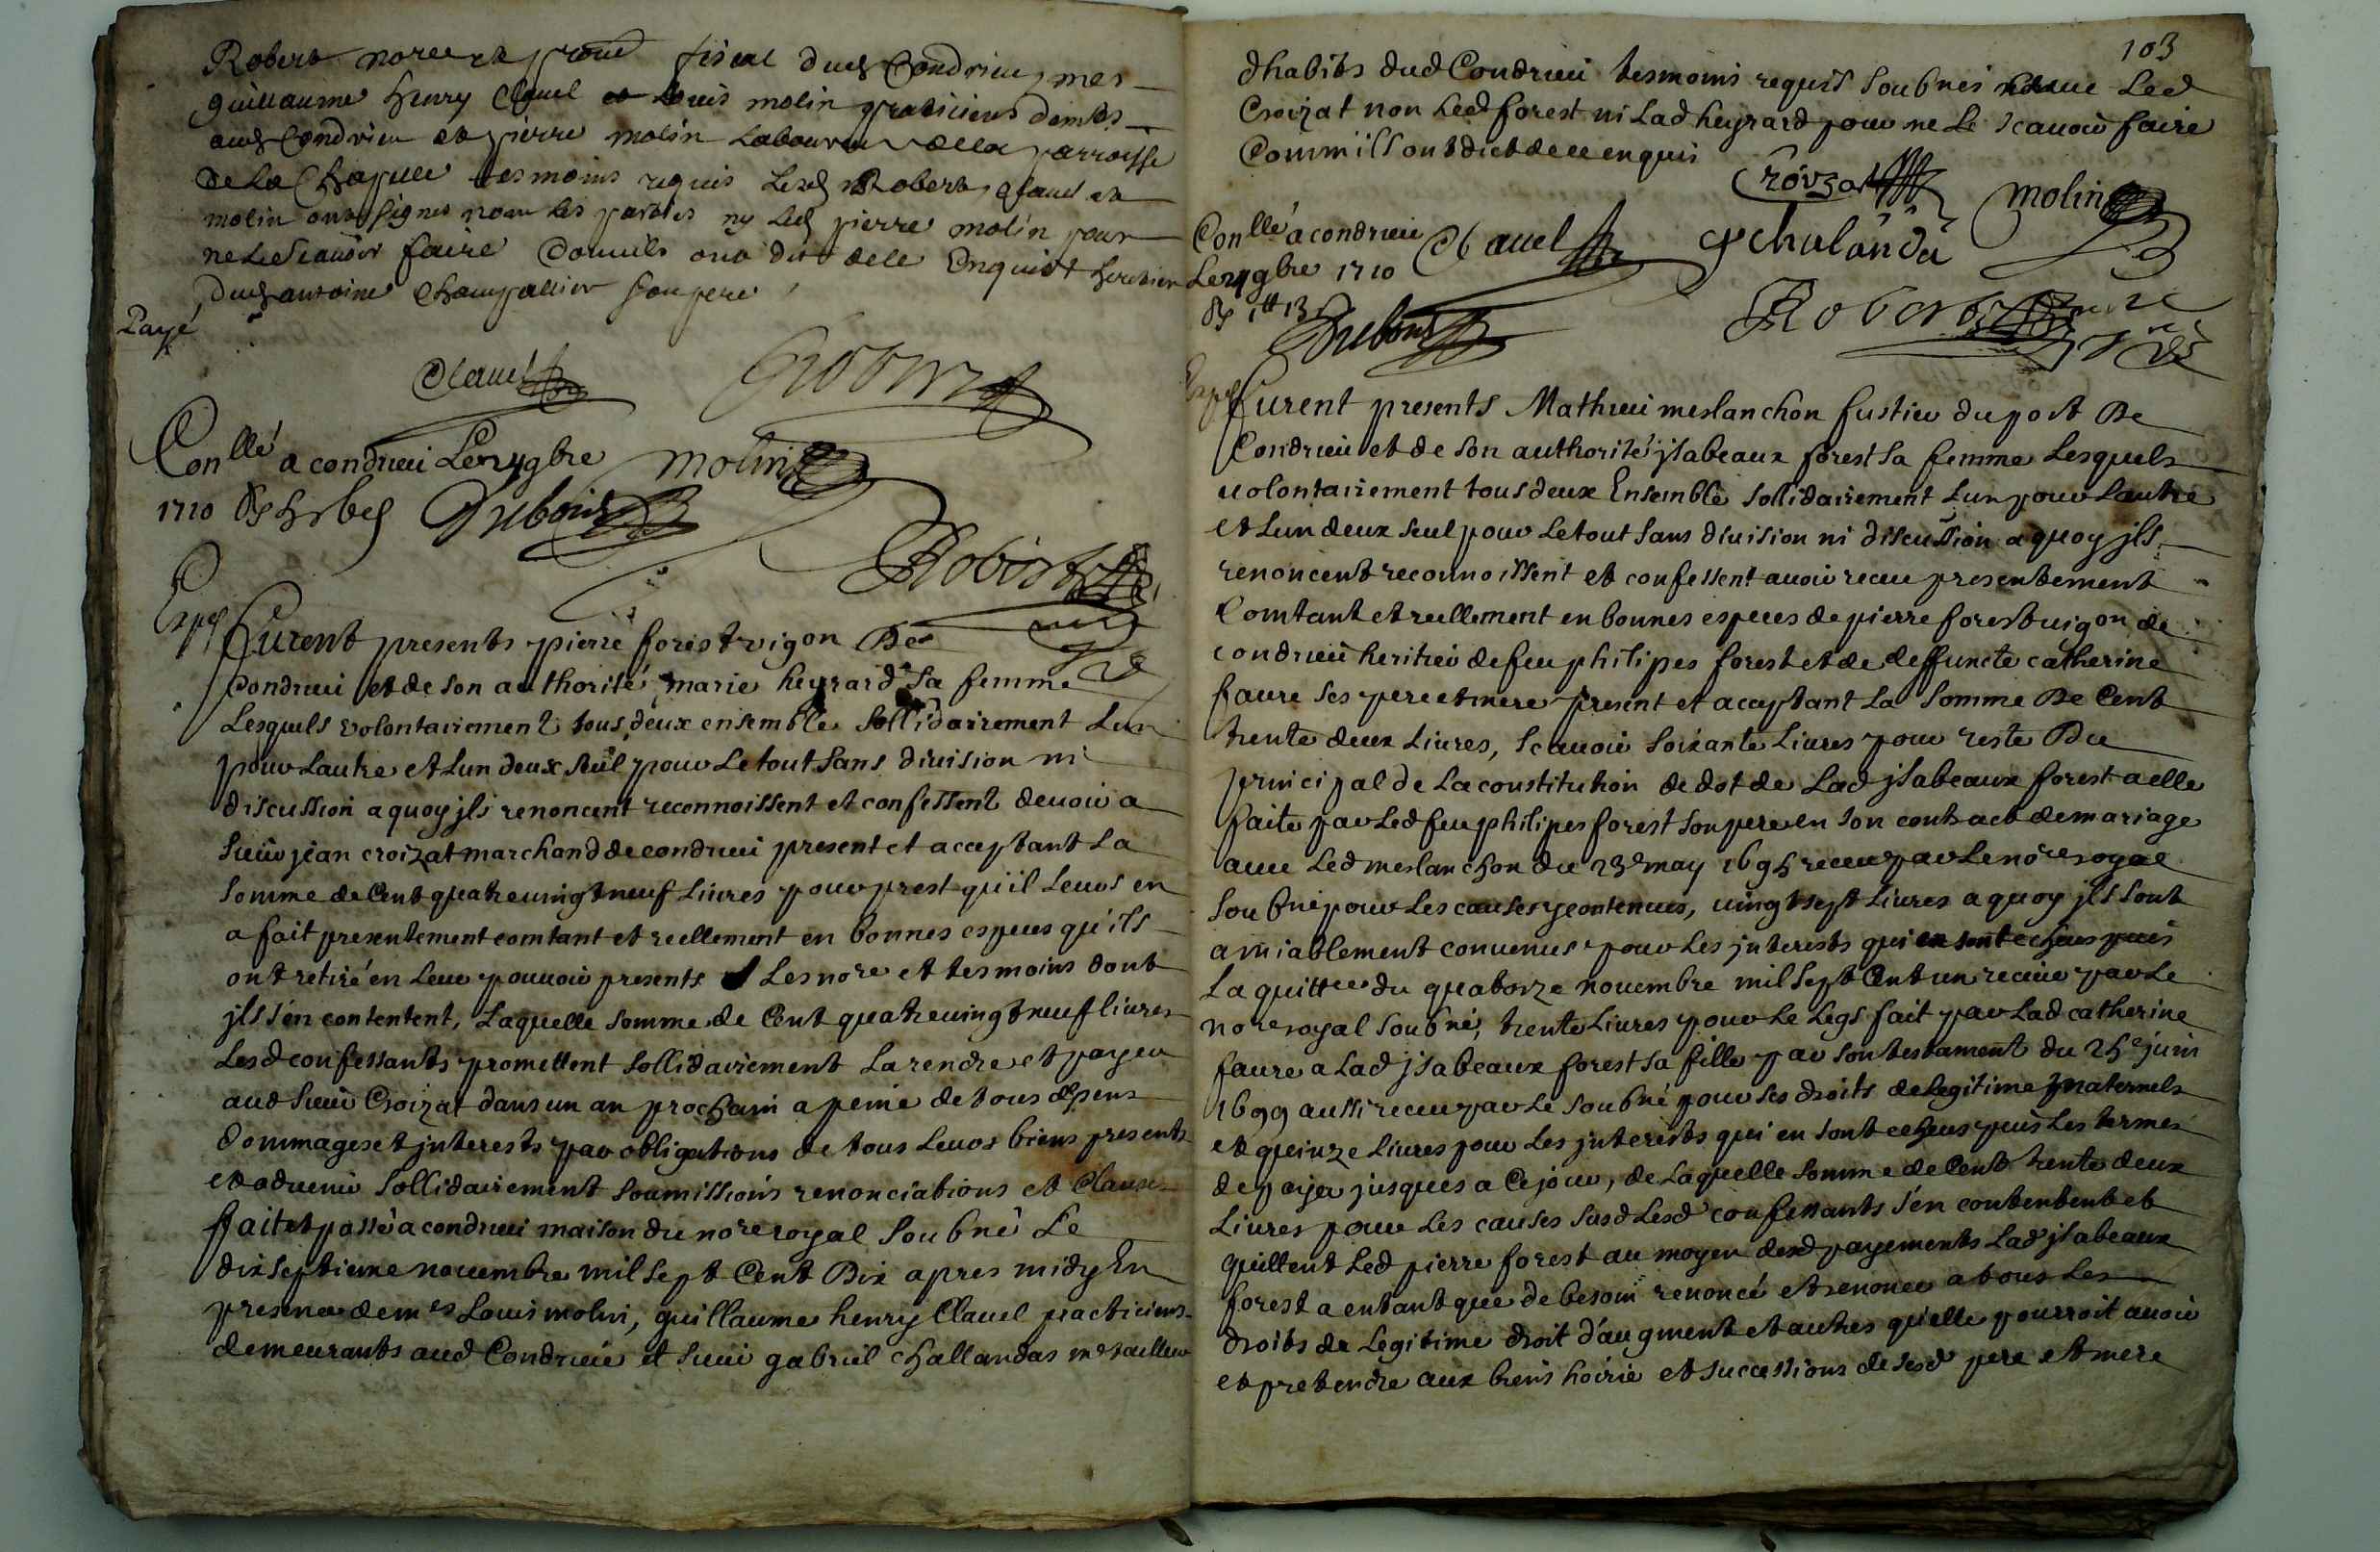 Robert nore et proc fiscal dud Condrieu, mes
guillaume henry Clauel et Louis molin praticiens demts
aud Condrieu et pierre molin Laboureur de la parroisse
de La Chapelle tesmoins requis Lesd Robert, Clauel et
molin ont signes non les parties ny Led pierre molin pour
ne Le Scauoir faire Comils ont dit de ce Enquis
dud antoine Champallier son pere
Payé
Clauel
Conllé a condrieu Le
molin
1710 Dubouis
Robert
Exp
Furent presents pierre forest vigon De
Condrieu et de son authorité marie heyrard sa femme
Lesquels volontairement tous deux ensemble sollidairement Lun
pour Lautre et Lun deux seul pour Le tout sans diuision ni
discussion a quoy jls renoncent reconnoissent et confessent deuoir a
sieur jean croizat marchand de condrieu present et acceptant La
somme de Cent quatreuingt neuf Liures pour prest qu'il Leurs en
a fait presentement comtant et reellement en bonnes especes qu'ils
ont retiré en Leur pouuoir presents Les nore et tesmoins dont
jls s'en contentent, Laquelle somme de Cent quatreuingt neuf liures
Lesd confessants promettent sollidairement La rendre et payer
aud sieur Croizat dans un an prochain a peine de tous depens
dommages et jnterests par obligations de tous Leurs biens presents
et aduenir sollidairement soumissions renonciations et Clauses
fait et passé a condrieu maison du nore royal soubné Le
dix septieme nouembre mil sept Cent Dix apres midy En
presence de mes Louis molin, guillaume henry Clauel practiciens
demeurants aud Condrieu et sieur gabriel challandas me tailleur
103
dhabits dud Condrieu tesmoins requis soubnés Led
Croizat non Led forest ni Lad heyrard pour ne Le scauoir faire
Comm'ils ont dict de ce enquis
Croyzat
molin
Conllé a condrieu
Clauel
Le 1710
Dubouis
Robert
Exp
Furent presents Mathieu meslanchon fustier du port De
Condrieu et de son authorité jsabeaux forest sa femme Lesquels
uolontairement tous deux Ensemble sollidairement Lun pour Lautre
et Lun deux seul pour Le tout sans diuision ni discussion a quoy jls
renoncent reconnoissent et confessent auoir receu presentement
Comtant et reellement en bonnes especes de pierre forest uigon de
condrieu heritier de feu philipes forest et de deffuncte catherine
faure ses pere et mere present et acceptant La somme De Cent
trente deux Liures, scauoir soixante Liures pour reste Du
principal de La constitution de dot de Lad jsabeaux forest a elle
faite par Led feu philipes forest son pere en son contract de mariage
auec Led meslanchon du 23e may receu par Le nore royal
soubné pour Les causes y contenues, uingt sept Liures a quoy jls sont
amiablement conuenus pour Les jnterests qui en sont echeus puis
La quittce du quatorze nouembre mil sept Cent un receue par Le
nore royal soubné, trente Liures pour Le Legs fait par Lad catherine
faure a Lad jsabeaux forest sa fille par son testament du juin
1699 aussi receu par Le soubné pour ses droits de Legitime maternels
et quinze Liures pour Les jnterests qui en sont echeus puis Les termes
de payer jusques a Ce jour, de Laquelle somme de Cent trente deux
Liures pour Les causes susd Lesd confessants s'en contentent et
quittent Led pierre forest au moyen desd payements Lad jsabeaux
forest a entant que de besoin renoncé et renonce a tous Les
droits de Legitime droit d'augment et autres qu'elle pourroit auoir
et pretendre aux biens hoirie et successions de sesd pere et mere